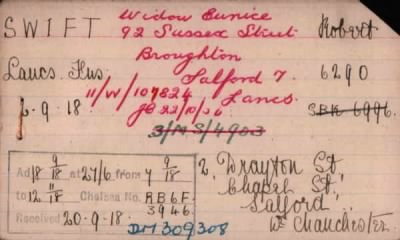 SWIFT
Widow Eunice
92 Sussex Street
Broughton
Salford 7.
Lancs.
Robert
Lancs. Fus.
11/W/107824
JB 22/10/26
6290
6-9-18.
SBR 6996.
3/MS/4903
Ad 18 9/18 at 27/6 from 4 9/18
to 12 11/18 Chelsea No. RB6F.
3946
Received 20-9-18.
DM309308
2, Drayton St,
Chapel St,
Salford,
W. Manchester